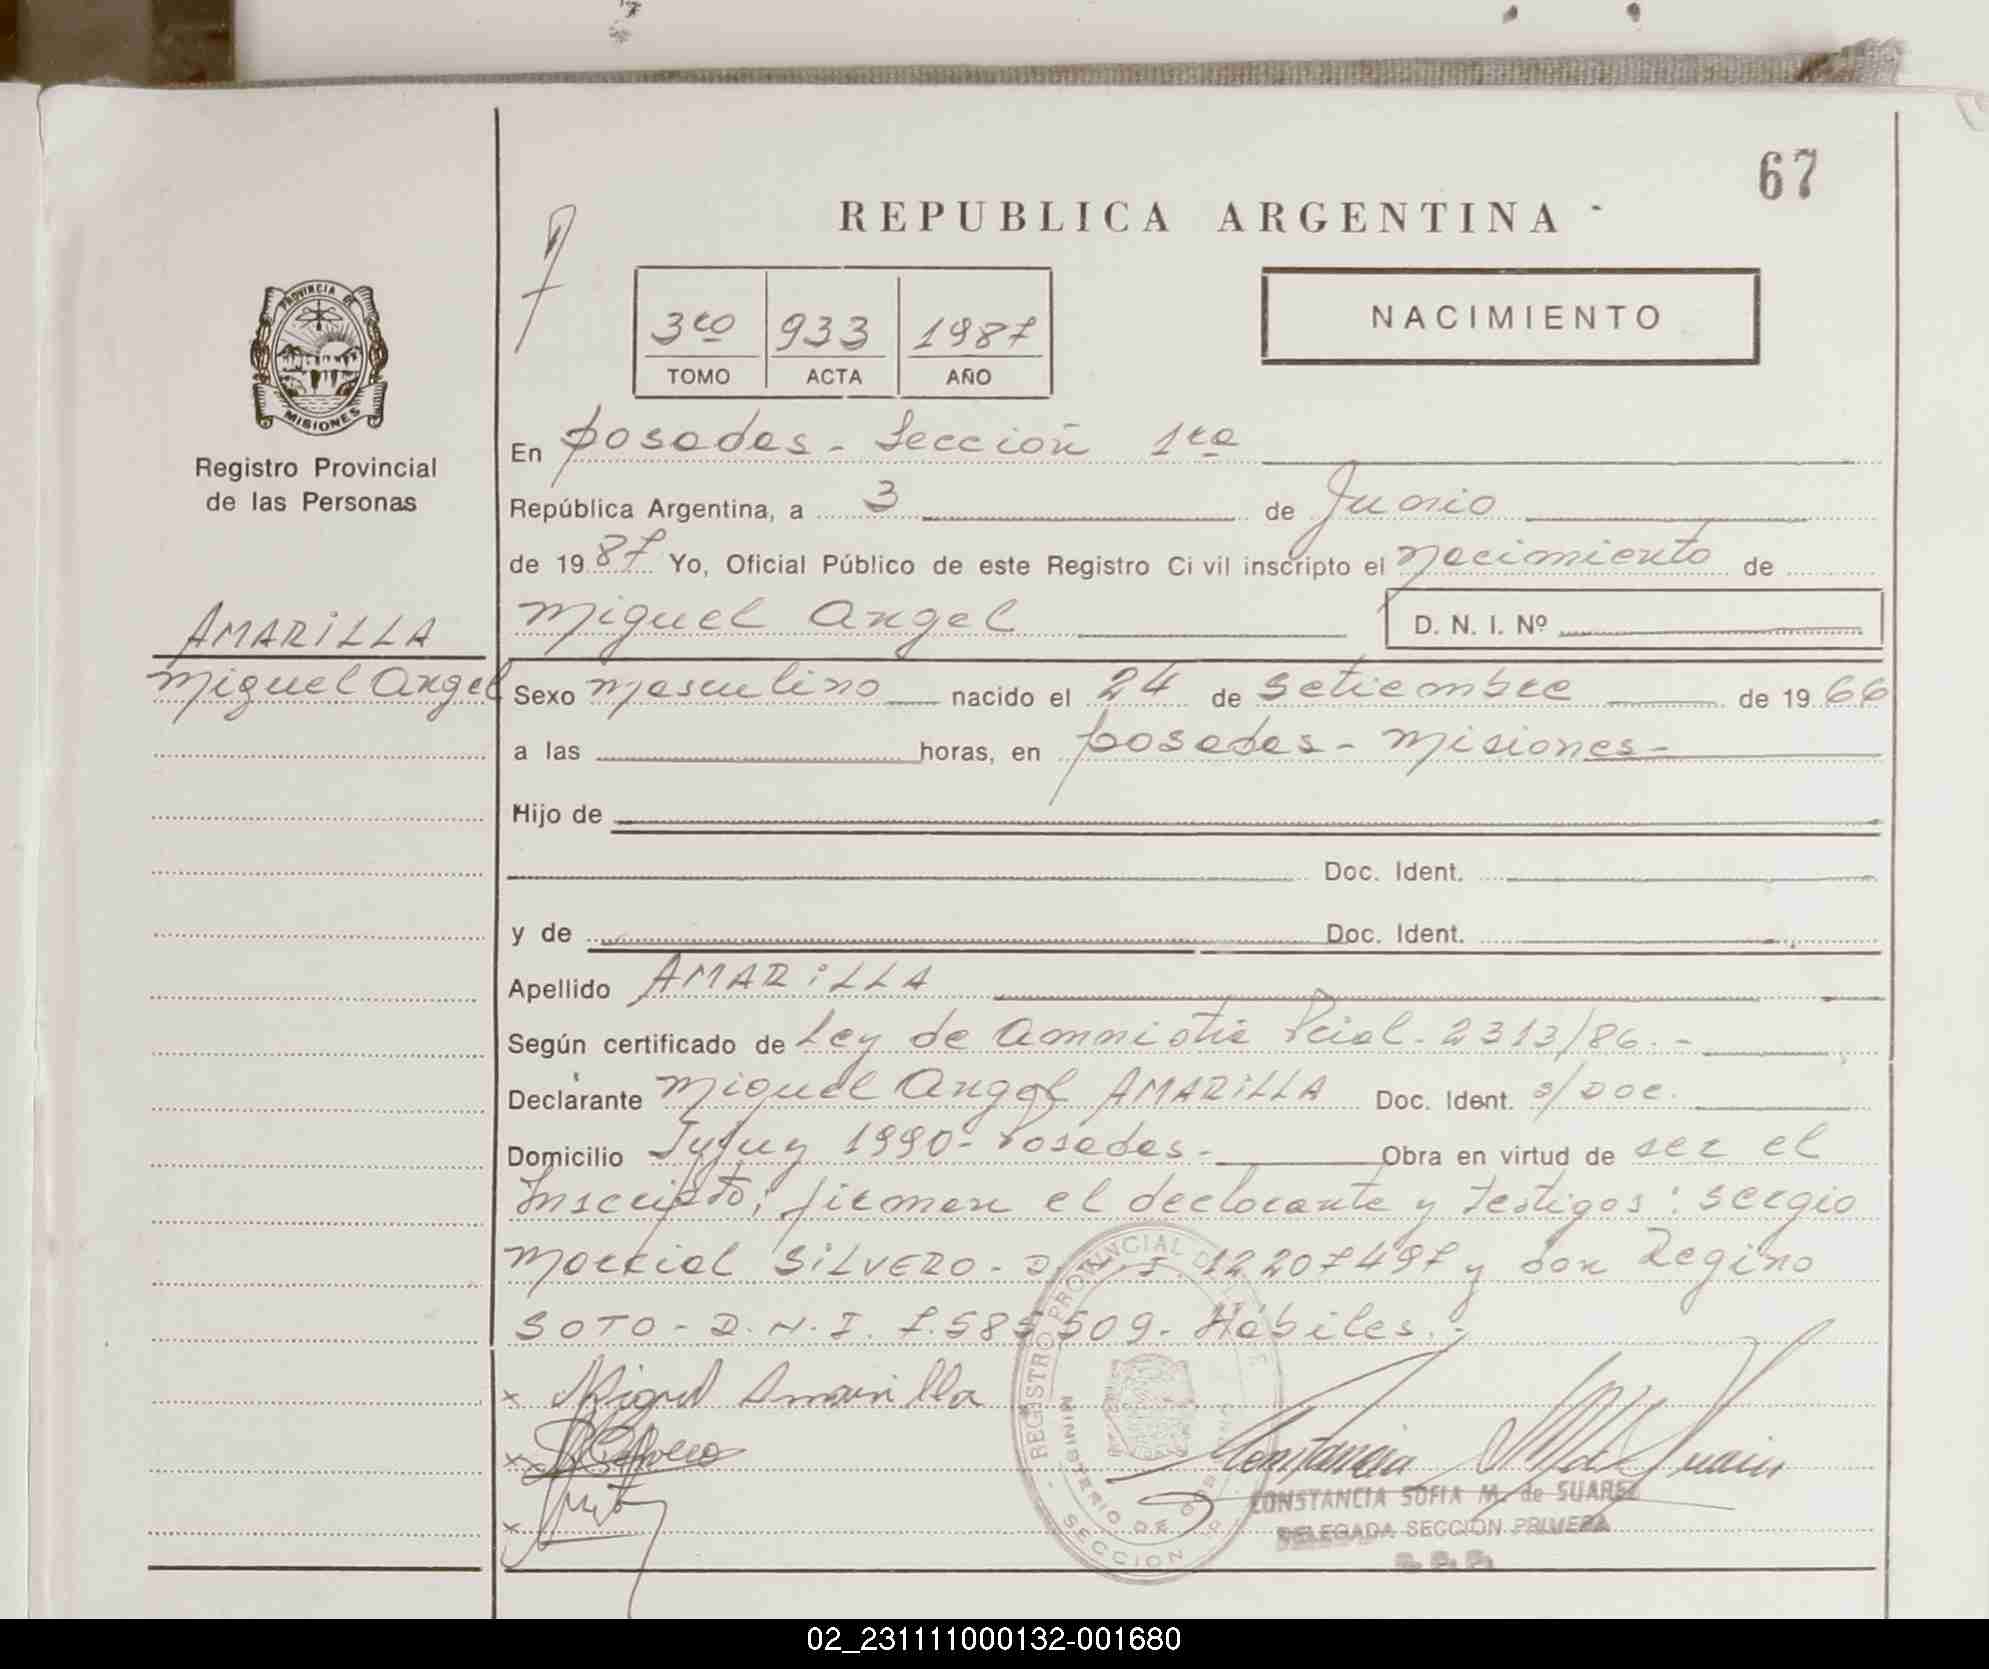 67
REPUBLICA ARGENTINA
3ro 933 1987
TOMO ACTA AÑO
NACIMIENTO
PROVINCIA DE MISIONES
Registro Provincial
de las Personas
AMARiLLA
Miguel Angel
En Posadas - Sección 1ra
República Argentina, a 3 de Junio
de 1987 Yo, Oficial Público de este Registro Civil inscripto el nacimiento de
Miguel Angel D. N. I. Nº
Sexo masculino nacido el 24 de Setiembre de 1966
a las horas, en Posadas - Misiones -
Hijo de
Doc. Ident.
y de Doc. Ident.
Apellido AMARiLLA
Según certificado de Ley de Amnistia Pcial. 2313/86. -
Declarante Miguel Angel AMARiLLA Doc. Ident. s/Doc.
Domicilio Jujuy 1990 - Posadas - Obra en virtud de ser el
Inscripto; firman el declarante y testigos: Sergio
Marcial SiLVERO - D.N.I. 12207497 y don Regino
SOTO - D.N.I. 7.585.509 - Hábiles. -
x Miguel Amarilla
x
x
REGISTRO PROVINCIAL DE
MINISTERIO DE GOBIERNO
SECCION
CONSTANCIA SOFIA M. de SUAREZ
DELEGADA SECCION PRIMERA
02_231111000132-001680